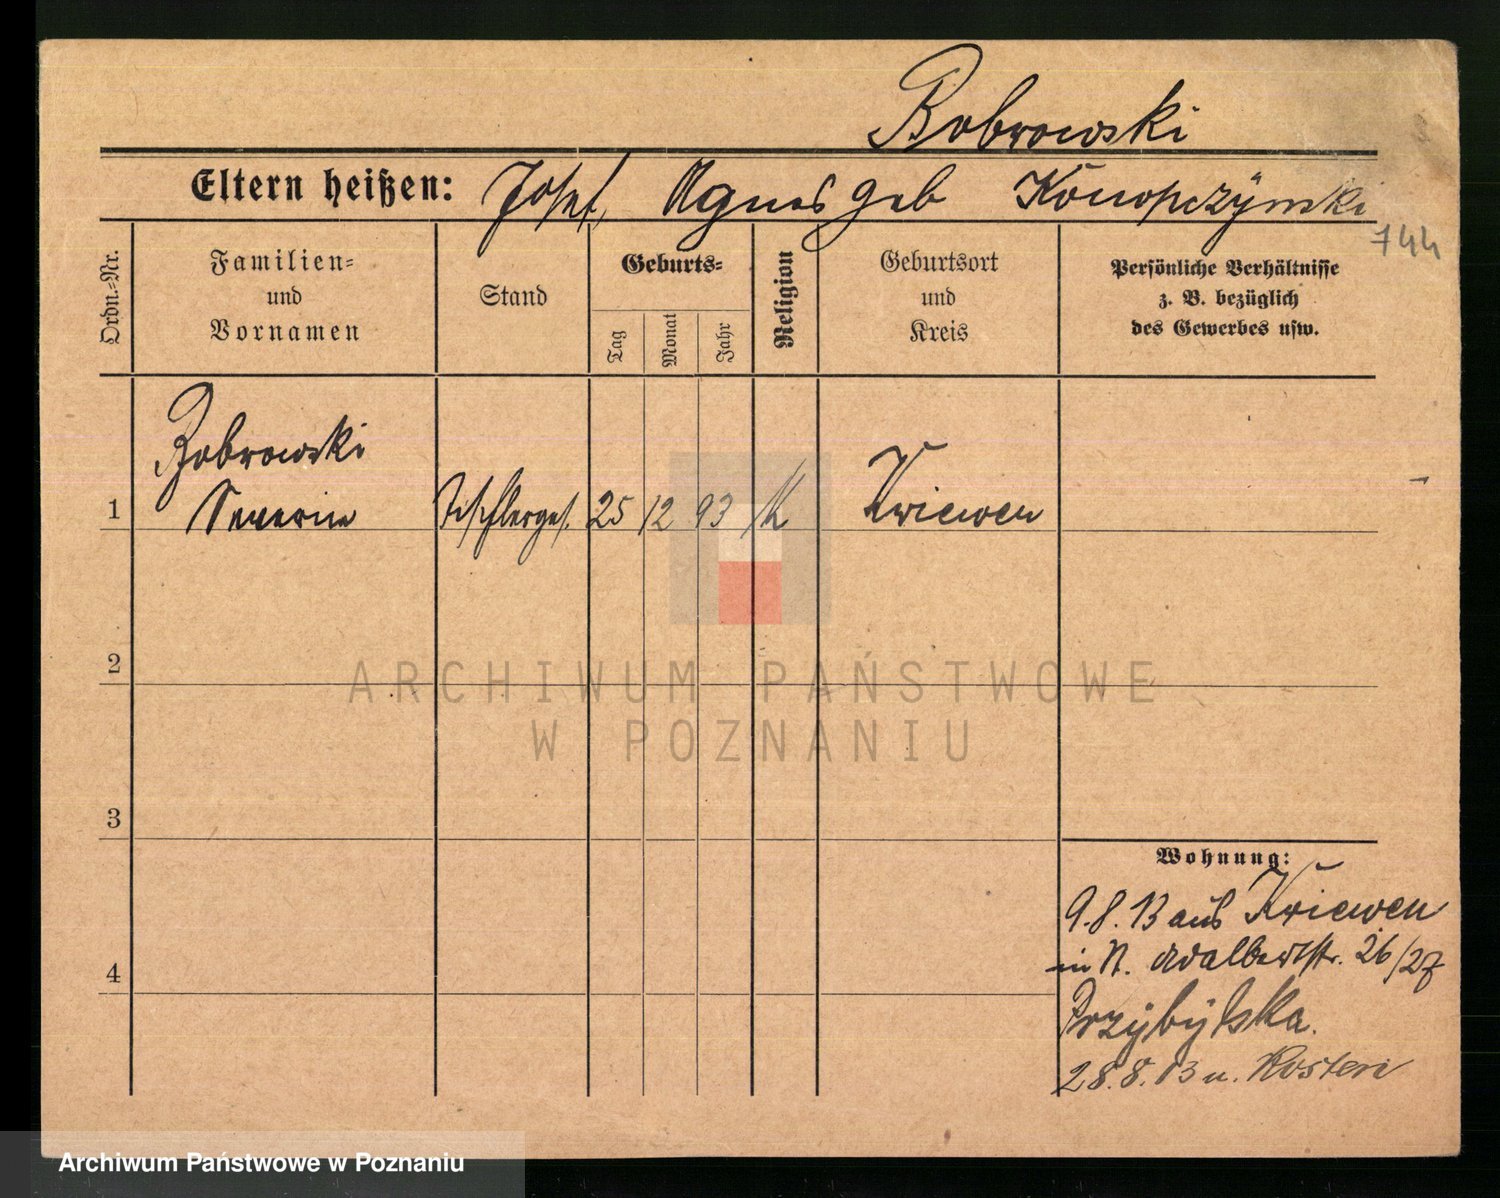 Bobrowski
Eltern heißen: Josef, Agnes geb Konopczynski
744
Ordn.-Nr.
Familien-
und
Vornamen
Stand
Geburts-
Tag
Monat
Jahr
Religion
Geburtsort
und
Kreis
Persönliche Verhältnisse
z. B. bezüglich
des Gewerbes usw.
Bobrowski
1 Severin Tischlerges. 25 12 93 K Kriewen
2
ARCHIWUM PAŃSTWOWE
W POZNANIU
3
Wohnung:
9.8.13 aus Kriewen
in N. Adalbertstr. 26/27
4
Przybylska.
28.8.13 n. Kosten
Archiwum Państwowe w Poznaniu